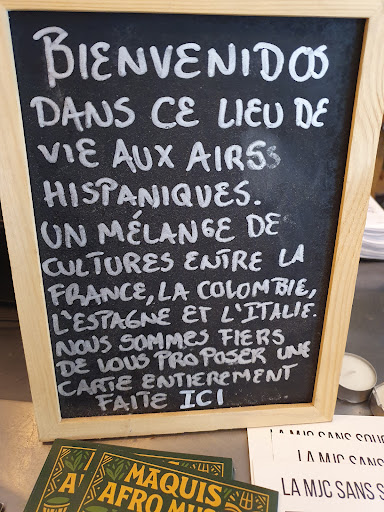 BIENVENIDOS
DANS CE LIEU DE
VIE AUX AIRS
HISPANIQUES.
UN MÉLANGE DE
CULTURES ENTRE LA
FRANCE, LA COLOMBIE,
L'ESPAGNE ET L'ITALIE.
NOUS SOMMES FIERS
DE VOUS PROPOSER UNE
CARTE ENTIEREMENT
FAITE ICI
LA MJC SANS SOU
LA MJC SANS
LA MJC SANS SO
MAQUIS
AFRO MUS